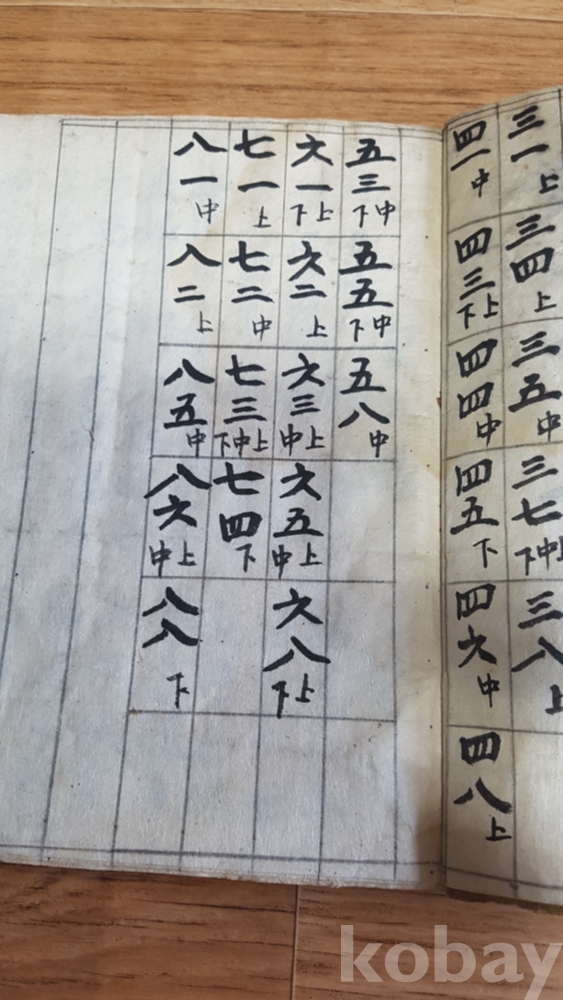 三一上 三四上 三五中 三七上中下 三八上
四一中 四三上下 四四中 四五下 四六中 四八上
五三中下 五五中下 五八中
六一上下 六二上 六三上中 六五上中 六八上下
七一上 七二中 七三上中下 七四下
八一中 八二上 八五中 八六上中 八八下
kobay